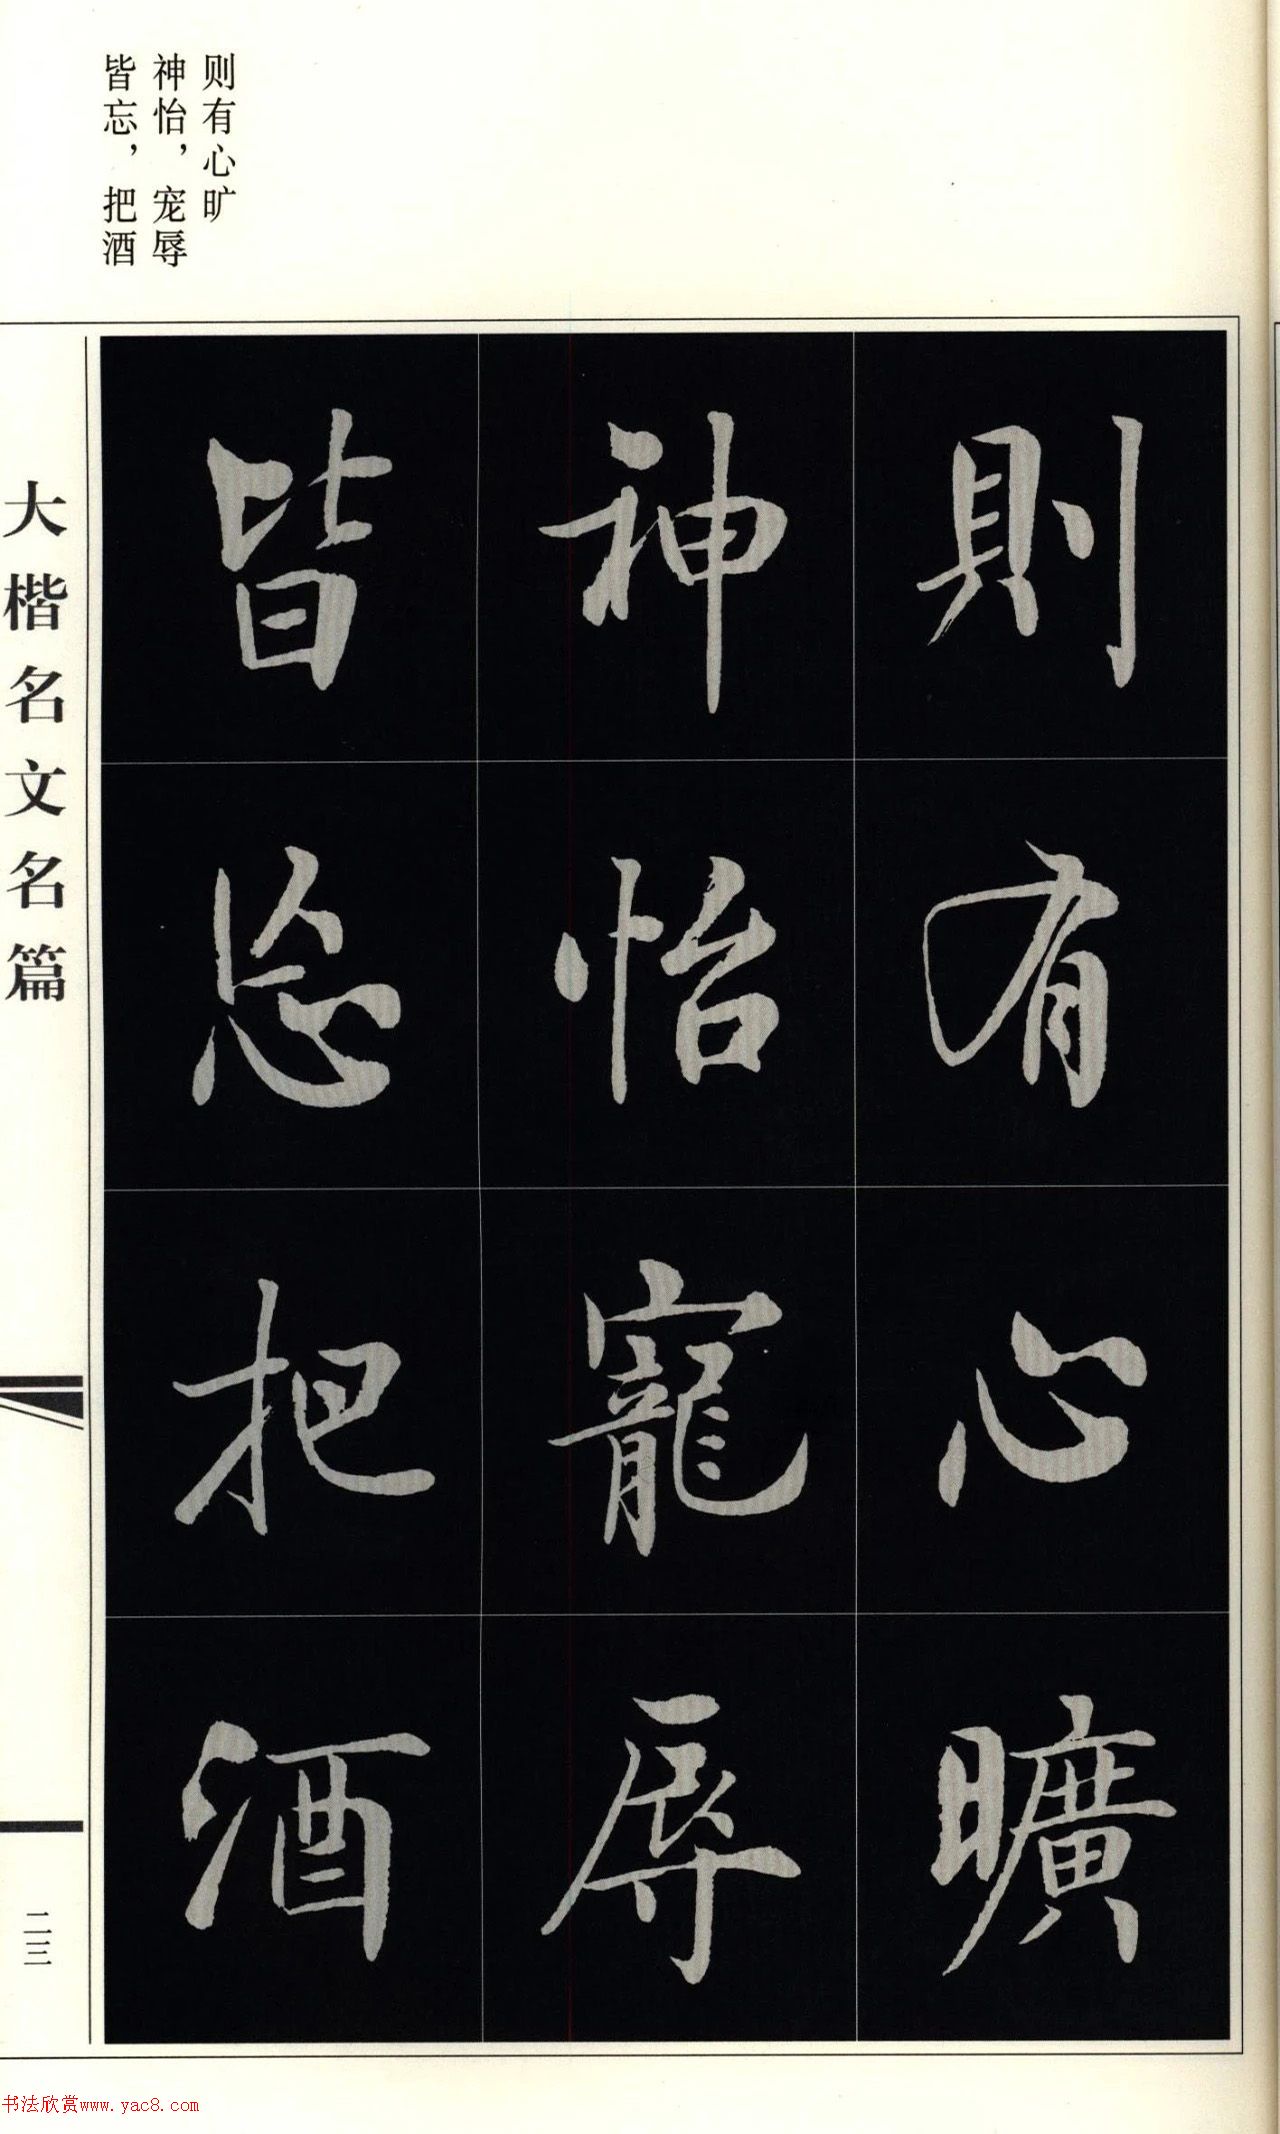 则有心旷
神怡，宠辱
皆忘，把酒
則有心曠
神怡寵辱
皆忘把酒
大楷名文名篇
二三
书法欣赏www.yac8.com